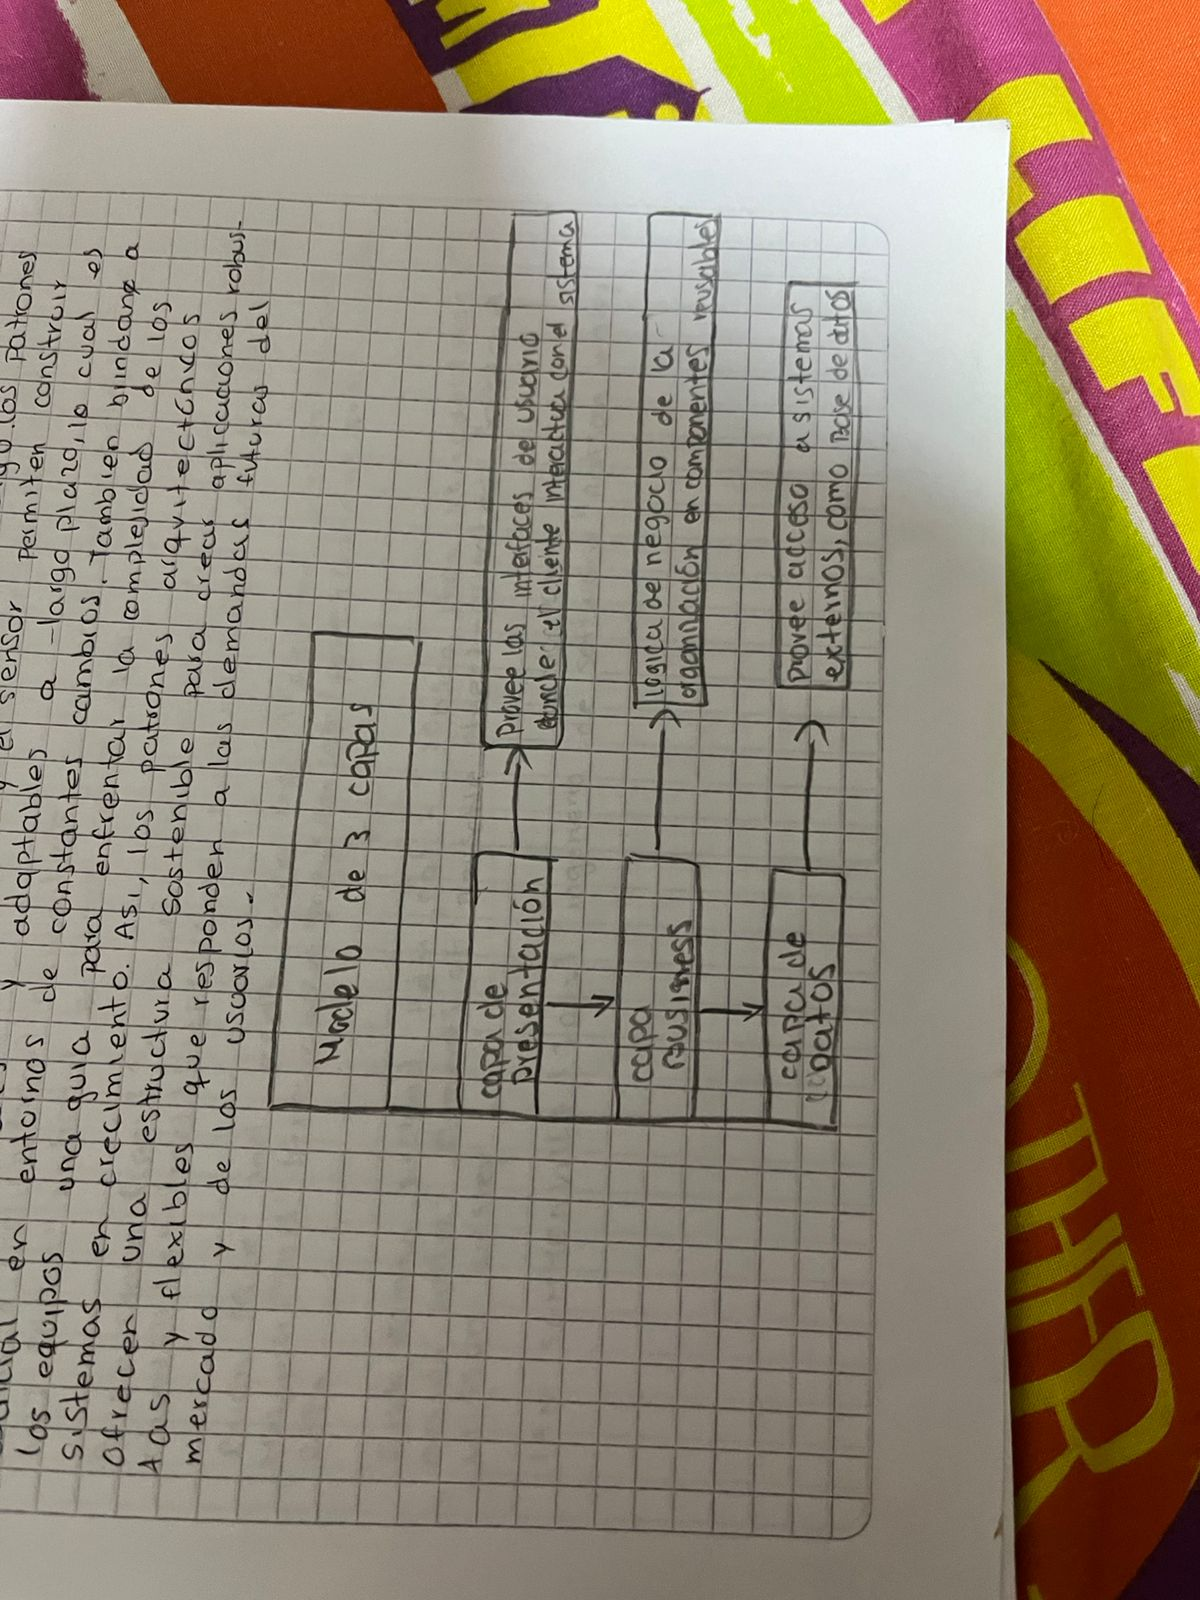 y el sensor
los patrones
y adaptables a largo plazo, lo cual es
en entornos de constantes cambios. Tambien brindang a
los equipos una guia para enfrentar la complejidad de los
sistemas en crecimiento. Asi, los patrones arquitectonicos
ofrecen una estructura sostenible para crear aplicaciones robus-
tas y flexibles que responden a las demandas futuras del
mercado y de los usuarios.
permiten construir
Modelo de 3 capas
capa de
presentación
Provee las interfaces de usuario
donde el cliente interactua con el sistema
capa
business
logica de negocio de la
organización en componentes reusables
capa de
datos
provee acceso a sistemas
externos, como base de datos
LIFE
OTHER